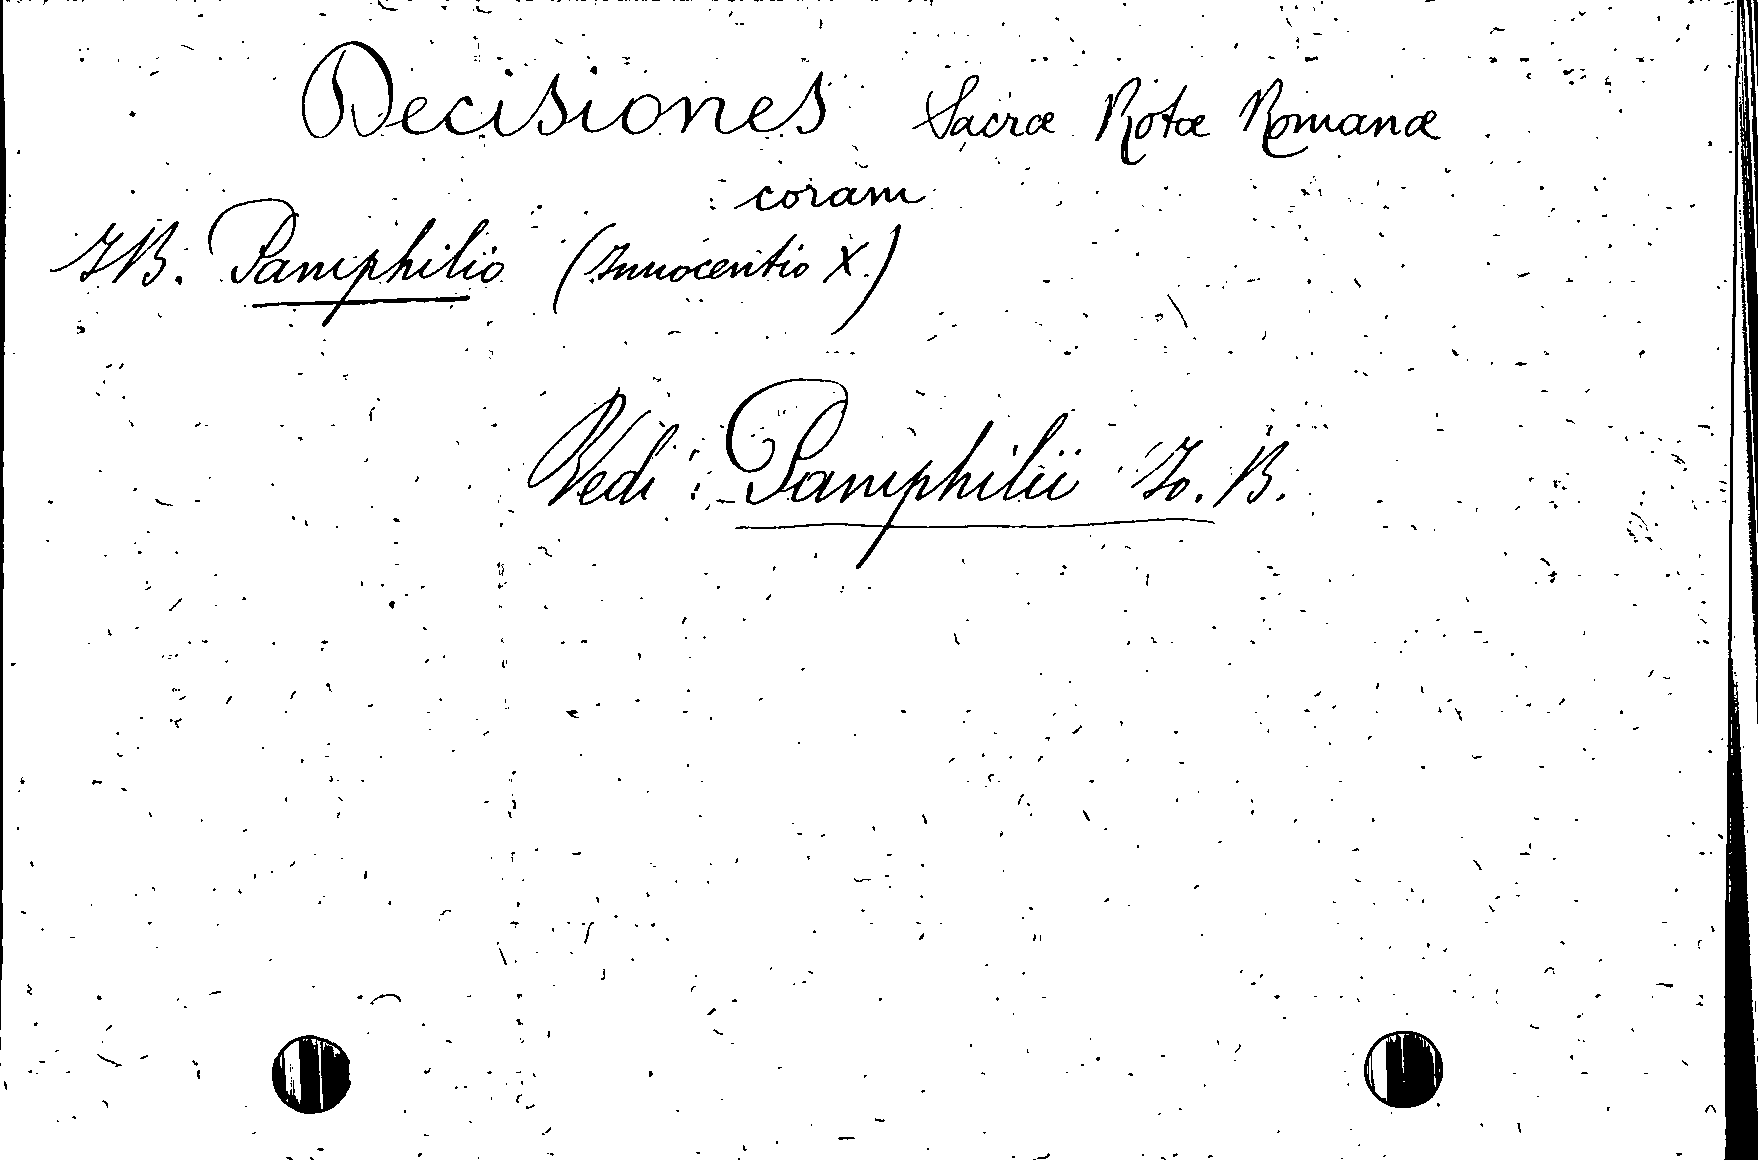 Decisiones Sacræ Rotæ Romanæ
coram
IB. Pamphilio (Innocentio X.)
Vedi: Pamphilii Io. B.